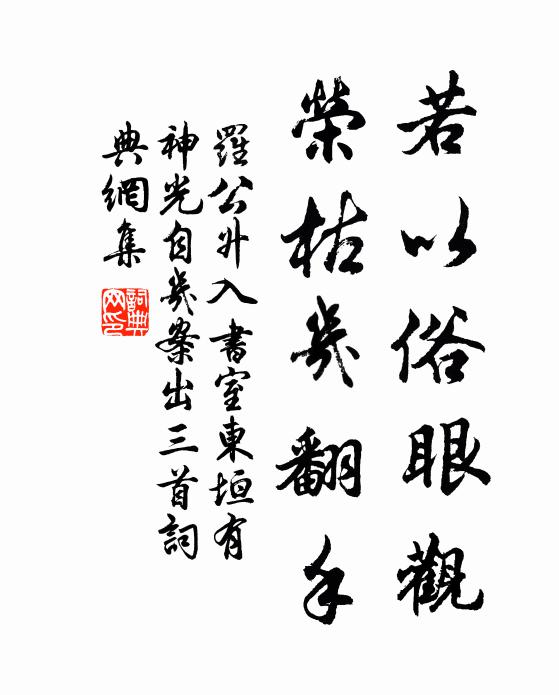 若以俗眼觀
榮枯幾翻手
羅公升入書室東垣有
神光自幾案出三首詞
典網集
詞典
网印